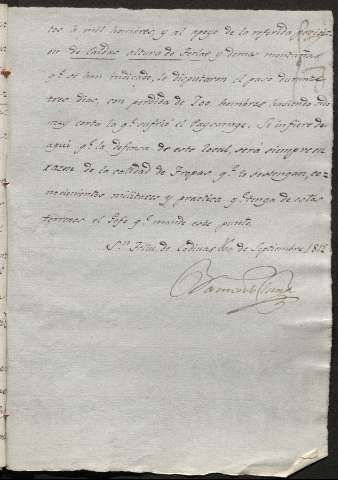 tos à mil hombres, y al apoyo de la referida posicion
en de Caldas altura de Farlas, y demas montañas
q.e se han indicado, le disputaron el paso durante
tres dias, con perdida de 700 hombres, haciendo mui
muy corta la q.e sufrió el Paysanage. Se infiere de
aqui q.e la defensa de este local, será siempre en
razon de la calidad de Tropas q.e lo sostengan, co-
nocimientos militares y practica q.e tenga de estos
terrenos el Gefe q.e mande este punto.
S.n Feliu de Codinas de Septiembre 1812